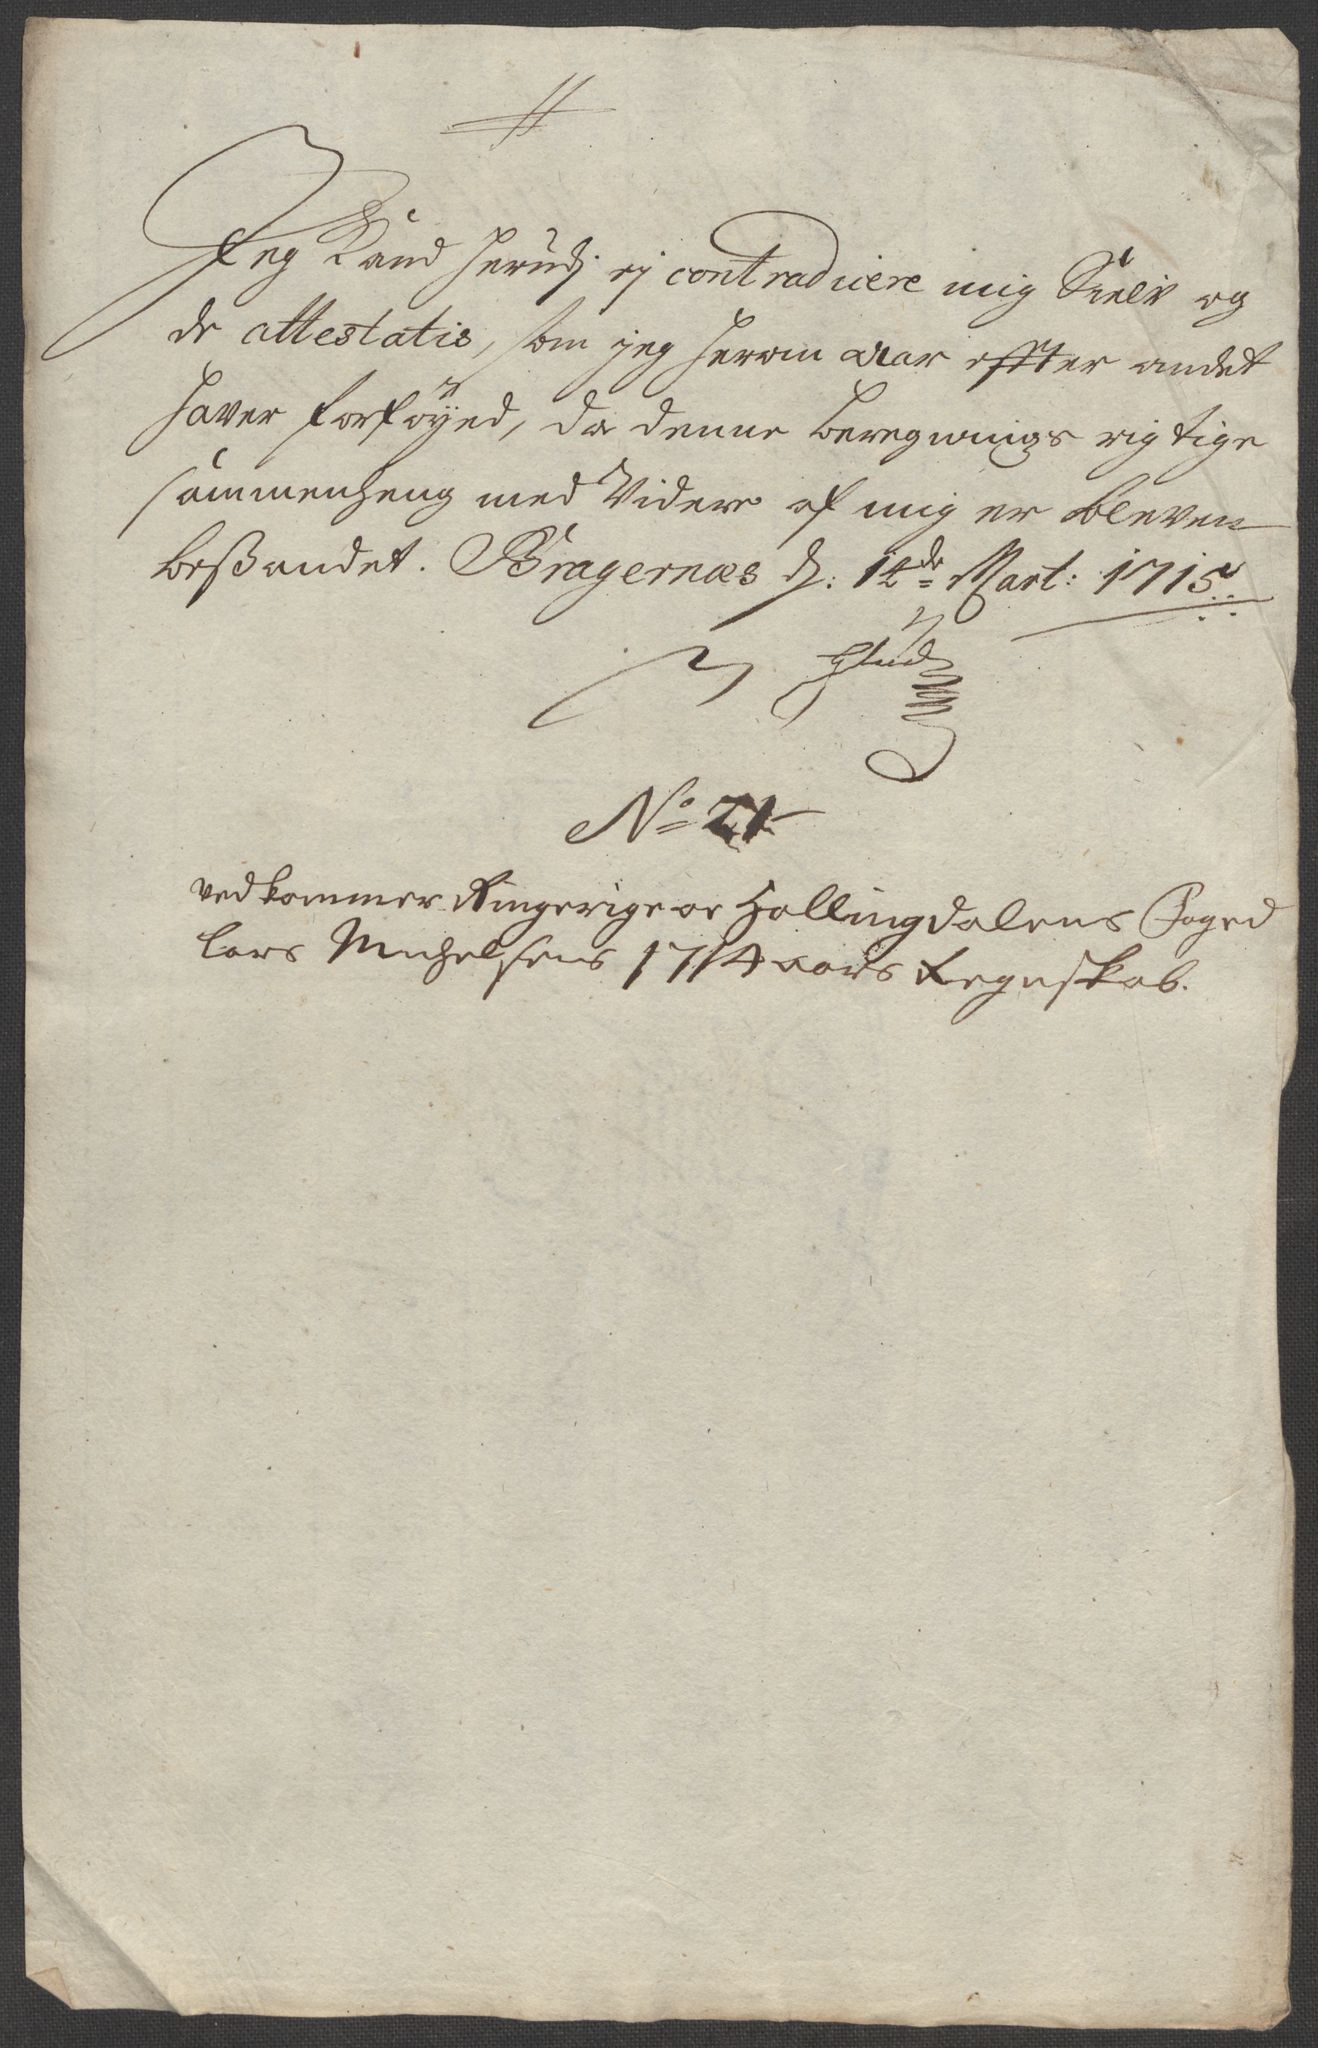 Jeg Kand herudj ej contradicere mig Sielv og
de attestatis, som jeg herom aar effter andet
haver forføyed, da denne beregnings rigtige
sammenheng med Videre af mig er bleven
besandet. Bragernæs d: 14de Mart: 1715
No 21
vedkommer Ringerige oc Hallingdalens Foged
Lars Michelsens 1714 aars Regnskab.